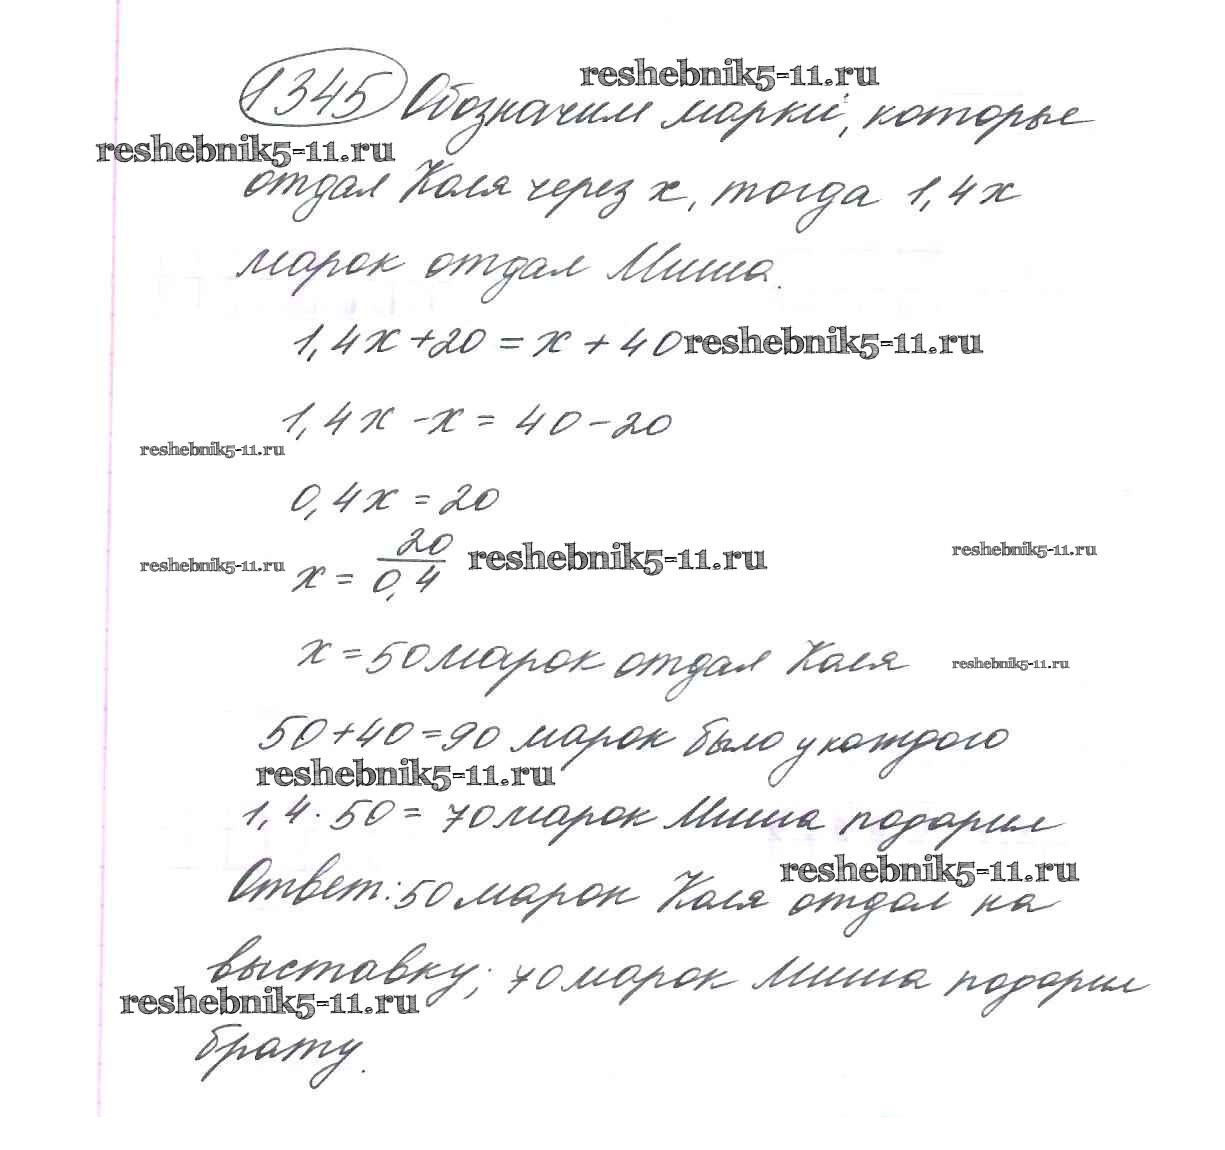 reshebnik5-11.ru
1345 Обозначим марки, которые
reshebnik5-11.ru
отдал Коля через x, тогда 1,4x
марок отдал Миша.
1,4x + 20 = x + 40 reshebnik5-11.ru
1,4x - x = 40 - 20
reshebnik5-11.ru
0,4x = 20
x = 20/0,4
reshebnik5-11.ru
reshebnik5-11.ru
reshebnik5-11.ru
x = 50 марок отдал Коля
reshebnik5-11.ru
50 + 40 = 90 марок было у каждого
reshebnik5-11.ru
1,4 · 50 = 70 марок Миша подарил
reshebnik5-11.ru
Ответ: 50 марок Коля отдал на
выставку; 70 марок Миша подарил
reshebnik5-11.ru
брату.